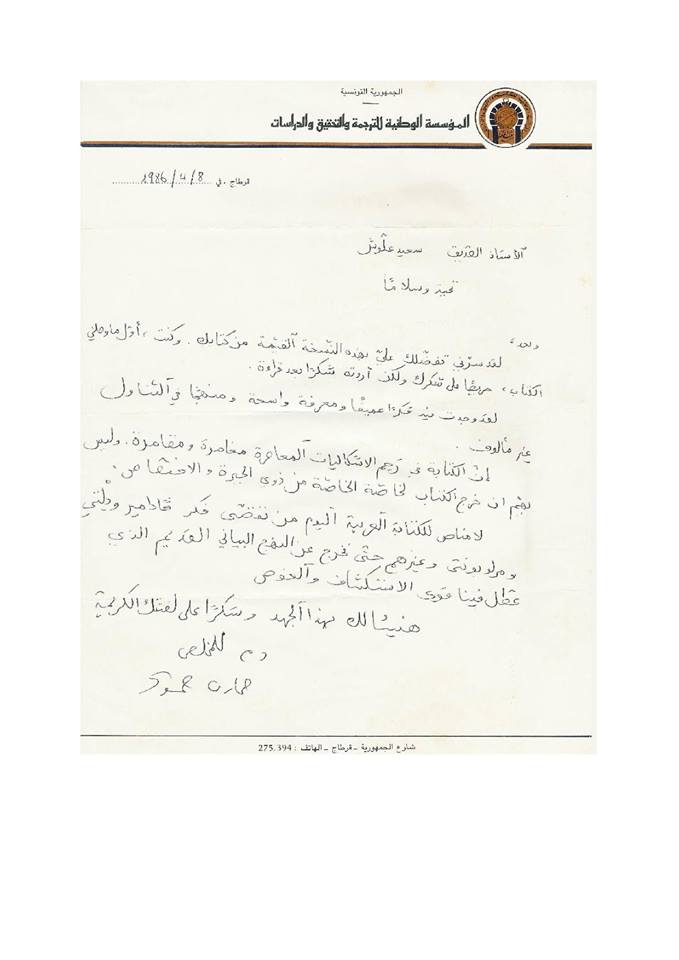 الجمهورية التونسية
المؤسسة الوطنية للترجمة والتحقيق والدراسات
قرطاج ، في 1986/4/8
الأستاذ الصديق سعيد علوش
تحية وسلامًا
وبعد،
لقد سرّني تفضّلك عليّ بهذه النسخة القيّمة من كتابك. وكنت، أوّل ما وصلني
الكتاب، حريصًا على شكرك ولكن أردته شكرًا بعد قراءة.
لقد وجدت فيه فكرًا عميقًا ومعرفة واسعة ومنهجًا في التناول
غير مألوف.
إنّ الكتابة في رحم الاشكاليات المعاصرة مغامرة ومقامرة. وليس
يهم ان خرج الكتاب لخاصّة الخاصّة من ذوي الخبرة والاختصاص.
لا مناص للكتابة العربية اليوم من تقصّي فكر ڤادامير ودلتي
وميرلوبونتي وغيرهم حتّى نخرج عن النهج البياني القديم الذي
عطّل فينا قوى الاستكشاف والغوص
هنيئا لك بهذا الجهد وشكرًا على لفتتك الكريمة
دم للمخلص
حمادي صمود
شارع الجمهورية - قرطاج - الهاتف : 275.394